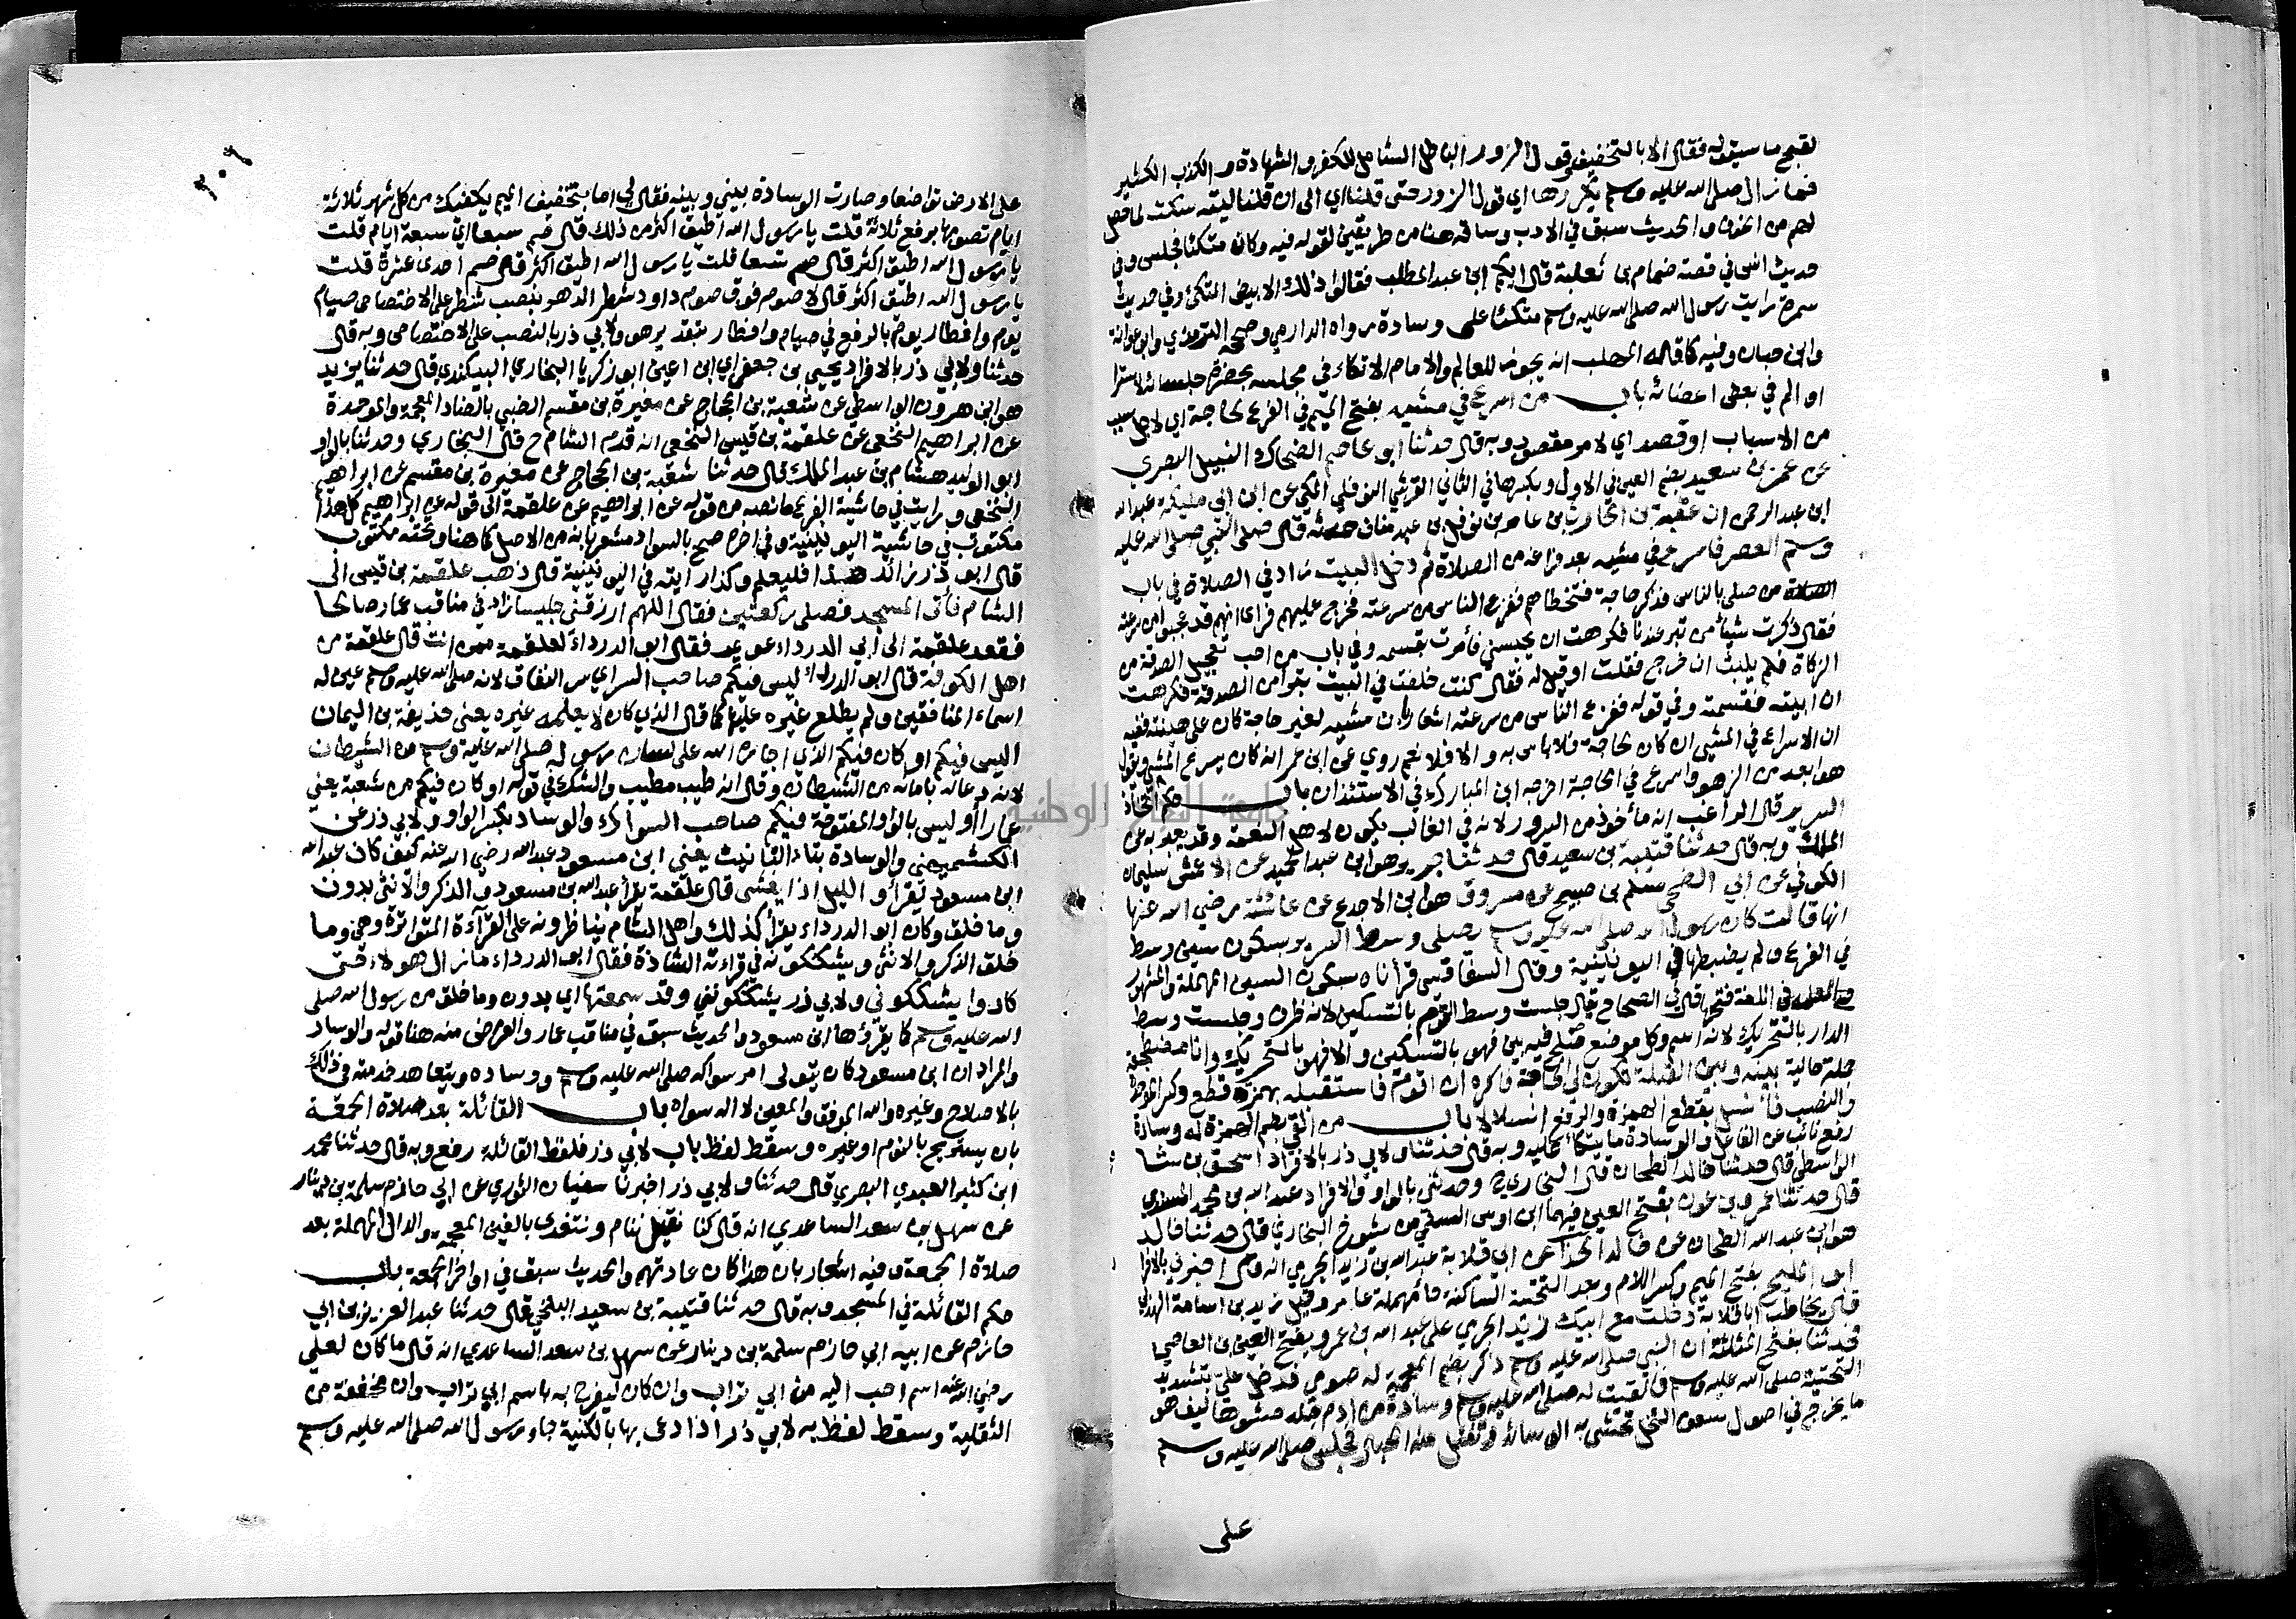 لقبح ما سيقوله فقال الا بالتخفيف وقول الزور الباطل الشامل للكفر والشهادة والكذب الكثير
فما زال صلى الله عليه وسلم يكررها اي قول الزور حتى قلنا اي الى ان قلنا ليته سكت لما حصل
لهم من الخوف والحديث سبق في الادب وساقه هنا من طريقين لقوله فيه وكان متكئا فجلس وفي
حديث انس في قصة ضمام بن ثعلبة قال ايكم ابن عبد المطلب فقالوا ذلك الابيض المتكئ وفي حديث
سمرة رايت رسول الله صلى الله عليه وسلم متكئا على وسادة رواه الدارمي وصححه الترمذي وابو عوانة
وابن حبان وفيه كما قاله المهلب انه يجوز للعالم والامام الاتكاء في مجلسه بحضرة جلسائه لاستراحة
او الم في بعض اعضائه باب من اسرع في مشيه بفتح الميم في الفرع لحاجة اي لاجل سبب
من الاسباب او قصد اي لامر مقصود وبه قال حدثنا ابو عاصم الضحاك النبيل البصري
عن عمر بن سعيد بضم العين في الاول وبكسرها في الثاني القرشي النوفلي المكي عن ابن ابي مليكة عبد الله
ابن عبد الرحمن ان عقبة بن الحارث بن عامر بن نوفل بن عبد مناف حدثه قال صلى النبي صلى الله عليه
وسلم العصر فاسرع في مشيه بعد فراغه من الصلاة ثم دخل البيت زاد في الصلاة في باب
من صلى بالناس فذكر حاجة فتخطاهم ففزع الناس من سرعته فخرج عليهم فراى انهم قد عجبوا من سرعته
فقال ذكرت شيئا من تبر عندنا فكرهت ان يحبسني فأمرت بقسمه وفي باب من احب تعجيل الصدقة من
الزكاة فلم يلبث ان خرج فقلت او قيل له فقال كنت خلفت في البيت تبرا من الصدقة فكرهت
ان ابيته فقسمته وفي قوله ففزع الناس من سرعته اشعار بان مشيه لغير حاجة كان على هينته ففيه
ان الاسراع في المشي ان كان لحاجة فلا باس به والا فلا نعم روي عن ابن عمر انه كان يسرع المشي ويقول
هو ابعد من الزهو واسرع في الحاجة اخرجه ابن المبارك في الاستئذان باب حكم اتخاذ
السرير قال الراغب انه مأخوذ من السرور لانه في الغالب يكون لاهل النعمة وقد يعبر به عن
الملك وبه قال حدثنا قتيبة بن سعيد قال حدثنا جرير هو ابن عبد الحميد عن الاعمش سليمان
الكوفي عن ابي الضحى مسلم بن صبيح عن مسروق هو ابن الاجدع عن عائشة رضي الله عنها
انها قالت كان رسول الله صلى الله عليه وسلم يصلي وسط السرير بسكون سين وسط
في الفرع ولم يضبطها في اليونينية وقال السفاقسي قرأناه بسكون السين المهملة والمشهور
في اللغة فتحها قال في الصحاح يقال جلست وسط القوم بالتسكين لانه ظرف وجلست وسط
الدار بالتحريك لانه اسم وكل موضع صلح فيه بين فهو بالتسكين والا فهو بالتحريك وانا مضطجعة
جملة حالية بينه وبين القبلة تكون لي الحاجة فاكره ان اقوم فاستقبله بهمزة قطع وكسر الموحدة
والنصب فأنسل بقطع الهمزة والرفع انسلالا باب من القي بضم الهمزة له وسادة
رفع نائب عن الفاعل والوسادة ما يتكأ عليه وبه قال حدثنا ولابي ذر بالافراد اسحق بن شا
الواسطي قال حدثنا خالد الطحان قال البخاري ح وحدثني بالواو والافراد عبد الله بن محمد المسندي
قال حدثنا عمرو بن عون بفتح العين فيهما ابن اوس السلمي من شيوخ البخاري قال حدثنا خالد
هو ابن عبد الله الطحان عن خالد الحذا عن ابي قلابة عبد الله بن زيد الجرمي انه قال اخبرني بالافراد
ابو المليح بفتح الميم وكسر اللام وبعد التحتية الساكنة حاء مهملة عامر وقيل زيد بن اسامة الهذلي
قال يخاطب ابا قلابة دخلت مع ابيك زيد الجرمي على عبد الله بن عمرو بفتح العين بن العاصي
فحدثنا بفتح المثلثة ان النبي صلى الله عليه وسلم ذكر بضم المعجمة له صومي فدخل علي بتشديد
التحتية صلى الله عليه وسلم فالقيت له صلى الله عليه وسلم وسادة من ادم جلد حشوها ليف هو
ما يخرج في اصول سعف النخل تحشى به الوسائد وتفتل منه الحبال فجلس صلى الله عليه وسلم
على
٣٠٩
على الارض تواضعا وصارت الوسادة بيني وبينه فقال لي اما بتخفيف الميم يكفيك من كل شهر ثلاثة
ايام تصومها برفع ثلاثة قلت يا رسول الله اطيق اكثر من ذلك قال صم سبعا اي سبعة ايام قلت
يا رسول الله اطيق اكثر قال صم تسعا قلت يا رسول الله اطيق اكثر قال صم احدى عشرة قلت
يا رسول الله اطيق اكثر قال لا صوم فوق صوم داود شطر الدهر بنصب شطر على الاختصاص صيام
يوم وافطار يوم بالرفع في صيام وافطار بتقدير هو ولابي ذر بالنصب على الاختصاص وبه قال
حدثنا ولابي ذر بالافراد يحيى بن جعفر اي ابن اعين ابو زكريا البخاري البيكندي قال حدثنا يزيد
هو ابن هرون الواسطي عن شعبة بن الحجاج عن مغيرة بن مقسم الضبي بالضاد المعجمة والموحدة
عن ابراهيم النخعي عن علقمة بن قيس النخعي انه قدم الشام ح قال البخاري وحدثنا بالواو
ابو الوليد هشام بن عبد الملك قال حدثنا شعبة بن الحجاج عن مغيرة بن مقسم عن ابراهيم
النخعي ورايت في حاشية الفرع ما نصه من قوله عن ابراهيم عن علقمة الى قوله عن ابراهيم كل هذا
مكتوب في حاشية اليونينية وفي اخره صح بالسواد مشعرا بانه من الاصل كما هنا وتحته مكتوب
قال ابو ذر زائد هذا فليعلم وكذا رايته في اليونينية قال ذهب علقمة بن قيس الى
الشام فأتى المسجد فصلى ركعتين فقال اللهم ارزقني جليسا زاد في مناقب عمار صالحا
فقعد علقمة الى أبي الدرداء عويمر فقال ابو الدرداء لعلقمة ممن انت قال علقمة من
اهل الكوفة قال ابو الدرداء أليس فيكم صاحب السر اي سر النفاق لانه صلى الله عليه وسلم عين له
اسماء المنافقين ولم يطلع غيره عليها كما قال الذي كان لا يعلمه غيره يعني حذيفة بن اليمان
اليس فيكم او كان فيكم الذي اجاره الله على لسان رسوله صلى الله عليه وسلم من الشيطان
لانه دعا له بامانه من الشيطان وقال انه طيب مطيب والشك في قوله او كان فيكم من شعبة يعني
عمارا أوليس بالواو المفتوحة فيكم صاحب السواك والوساد بكسر الواو ولابي ذر عن
الكشميهني والوسادة بتاء التأنيث يعني ابن مسعود عبد الله رضي الله عنه كيف كان عبد الله
ابن مسعود يقرأ والليل اذا يغشى قال علقمة يقرأ عبد الله بن مسعود والذكر والانثى بدون
وما خلق وكان ابو الدرداء يقرأ كذلك واهل الشام يناظرونه على القرآءة المتواترة وهي وما
خلق الذكر والانثى ويشككونه في قراءته الشاذة فقال ابو الدرداء ما زال هولاء حتى
كادوا يشككوني ولابي ذر يشككونني وقد سمعتها اي بدون وما خلق من رسول الله صلى
الله عليه وسلم كما يقرؤها ابن مسعود والحديث سبق في مناقب عمار والغرض منه هنا قوله والوساد
والمراد ان ابن مسعود كان يتولى امر سواكه صلى الله عليه وسلم ووساده ويتعاهد خدمته في ذلك
بالاصلاح وغيره والله الموفق والمعين لا اله سواه باب القائلة بعد صلاة الجمعة
بان يستريح بالنوم او غيره وسقط لفظ باب لابي ذر فلفظ القائلة رفع وبه قال حدثنا محمد
ابن كثير العبدي البصري قال حدثنا ولابي ذر اخبرنا سفيان الثوري عن ابي حازم سلمة بن دينار
عن سهل بن سعد الساعدي انه قال كنا نقيل ننام ونتغدى بالغين المعجمة والدال المهملة بعد
صلاة الجمعة وفيه اشعار بان هذا كان عادتهم والحديث سبق في اواخر الجمعة باب
حكم القائلة في المسجد وبه قال حدثنا قتيبة بن سعيد البلخي قال حدثنا عبد العزيز بن ابي
حازم عن ابيه ابي حازم سلمة بن دينار عن سهل بن سعد الساعدي انه قال ما كان لعلي
رضي الله عنه اسم احب اليه من ابي تراب وان كان ليفرح به باسم ابي تراب وان مخففة من
الثقيلة وسقط لفظ به لابي ذر اذا دعى بها بالكنية جاء رسول الله صلى الله عليه وسلم